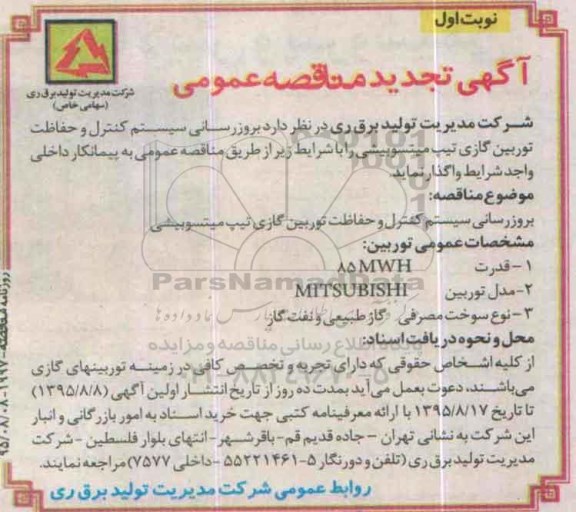 نوبت اول
آگهی تجدید مناقصه عمومی
شرکت مدیریت تولید برق ری
(سهامی خاص)
شرکت مدیریت تولید برق ری در نظر دارد بروزرسانی سیستم کنترل و حفاظت
توربین گازی تیپ میتسوبیشی را با شرایط زیر از طریق مناقصه عمومی به پیمانکار داخلی
واجد شرایط واگذار نماید.
موضوع مناقصه:
بروزرسانی سیستم کنترل و حفاظت توربین گازی تیپ میتسوبیشی
مشخصات عمومی توربین:
۱- قدرت ۸۵ MWH
۲- مدل توربین MITSUBISHI
۳- نوع سوخت مصرفی گاز طبیعی و نفت گاز
محل و نحوه دریافت اسناد:
از کلیه اشخاص حقوقی که دارای تجربه و تخصص کافی در زمینه توربینهای گازی
می‌باشند، دعوت بعمل می‌آید بمدت ده روز از تاریخ انتشار اولین آگهی (۱۳۹۵/۸/۸)
تا تاریخ ۱۳۹۵/۸/۱۷ با ارائه معرفینامه کتبی جهت خرید اسناد به امور بازرگانی و انبار
این شرکت به نشانی تهران - جاده قدیم قم - باقرشهر - انتهای بلوار فلسطین - شرکت
مدیریت تولید برق ری (تلفن و دورنگار ۵-۵۵۲۲۱۴۶۱ - داخلی ۷۵۷۷) مراجعه نمایند.
روابط عمومی شرکت مدیریت تولید برق ری
ParsNamadData
پایگاه اطلاع رسانی مناقصه و مزایده